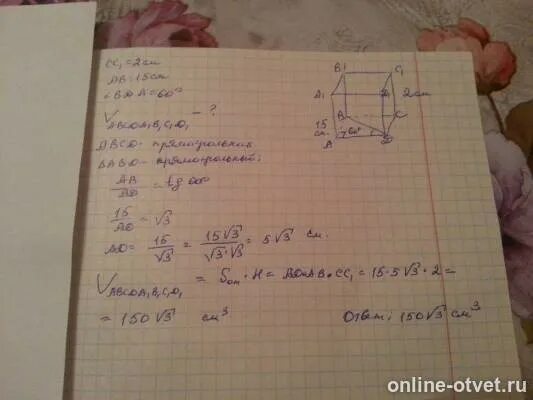 CC₁ = 2 см
AB = 15 см
∠BDA = 60°
V ABCDA₁B₁C₁D₁ - ?
ABCD - прямоугольник
ΔABD - прямоугольный:
AB/AD = tg 60°
15/AD = √3
AD = 15/√3 = 15√3/√3·√3 = 5√3 см.
V ABCDA₁B₁C₁D₁ = Sосн · H = AD·AB·CC₁ = 15·5√3·2 =
= 150√3 см³
Ответ: 150√3 см³
B₁ C₁
A₁ D₁ 2 см
B C
15 см. 60°
A D
online-otvet.ru